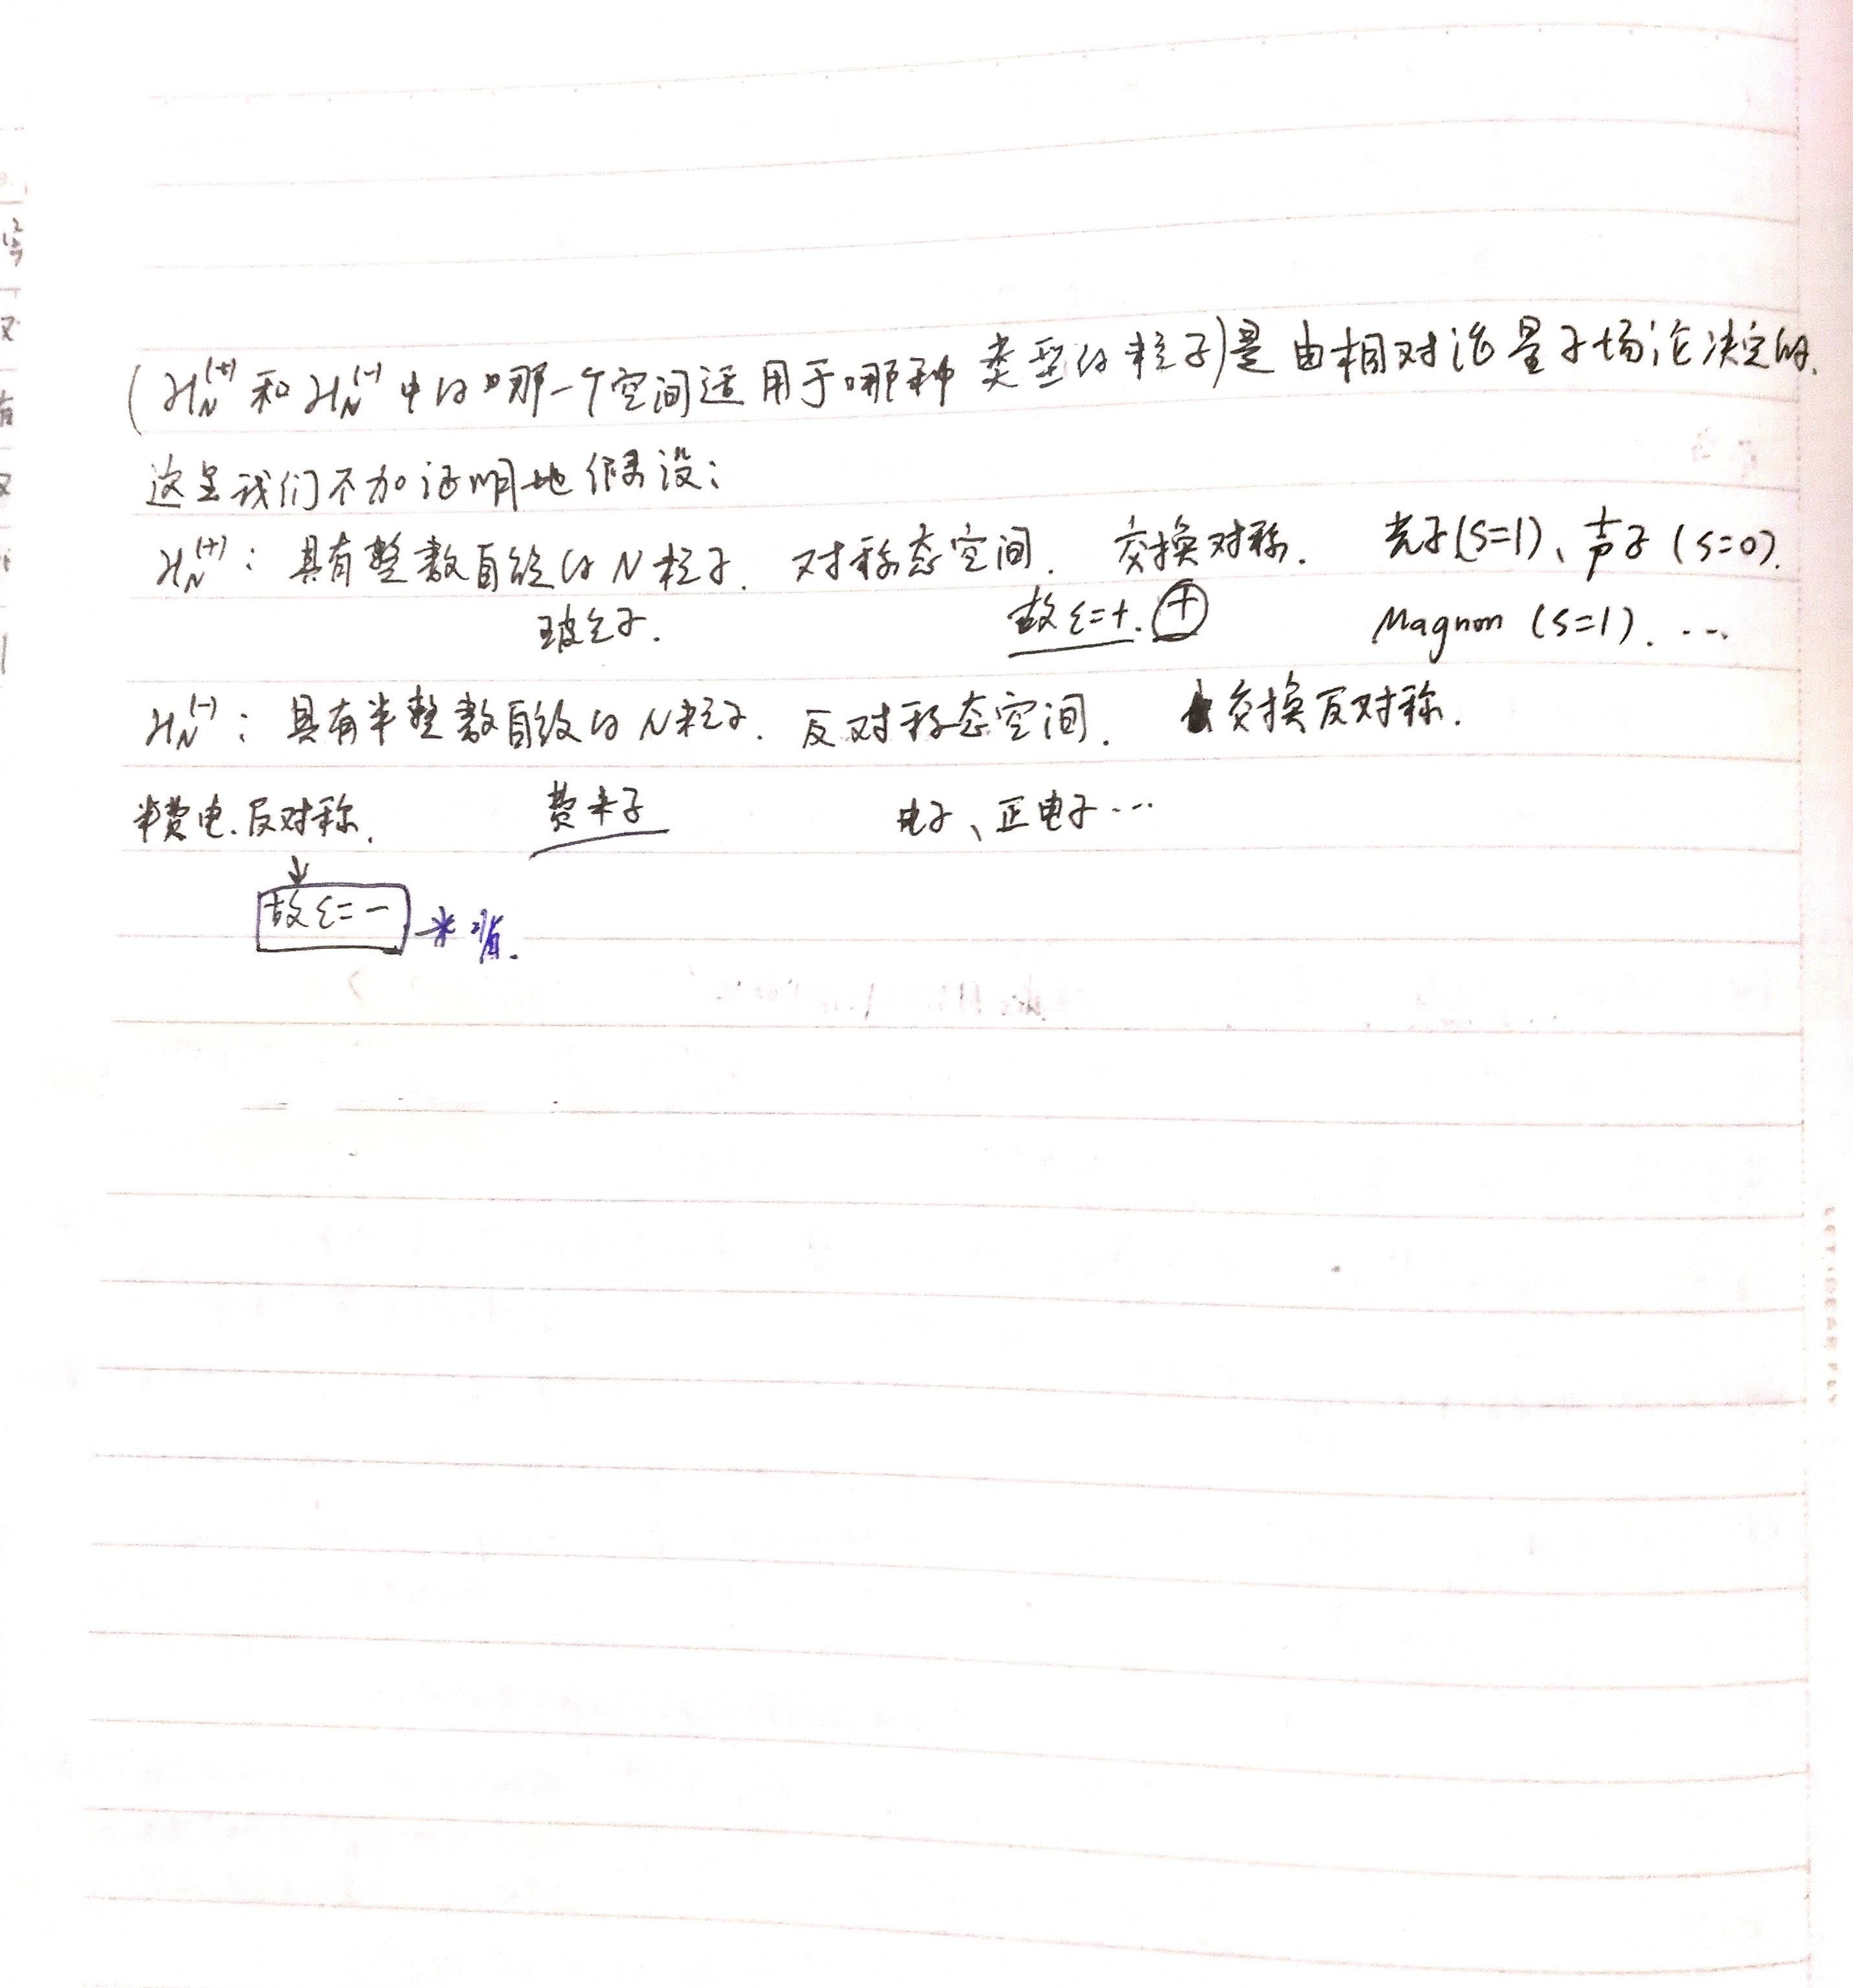 (ℋ_N^(+) 和 ℋ_N^(-) 中的哪一个空间适用于哪种类型的粒子)是由相对论量子场论决定的.
这里我们不加证明地假设:
ℋ_N^(+): 具有整数自旋的N粒子. 对称态空间. 交换对称. 光子(S=1)、声子(S=0).
玻色子. 故ε=+. ⊕ Magnon (S=1). ...
ℋ_N^(-): 具有半整数自旋的N粒子. 反对称态空间. 交换反对称.
半费电.反对称. 费米子 电子、正电子...
故ε=-